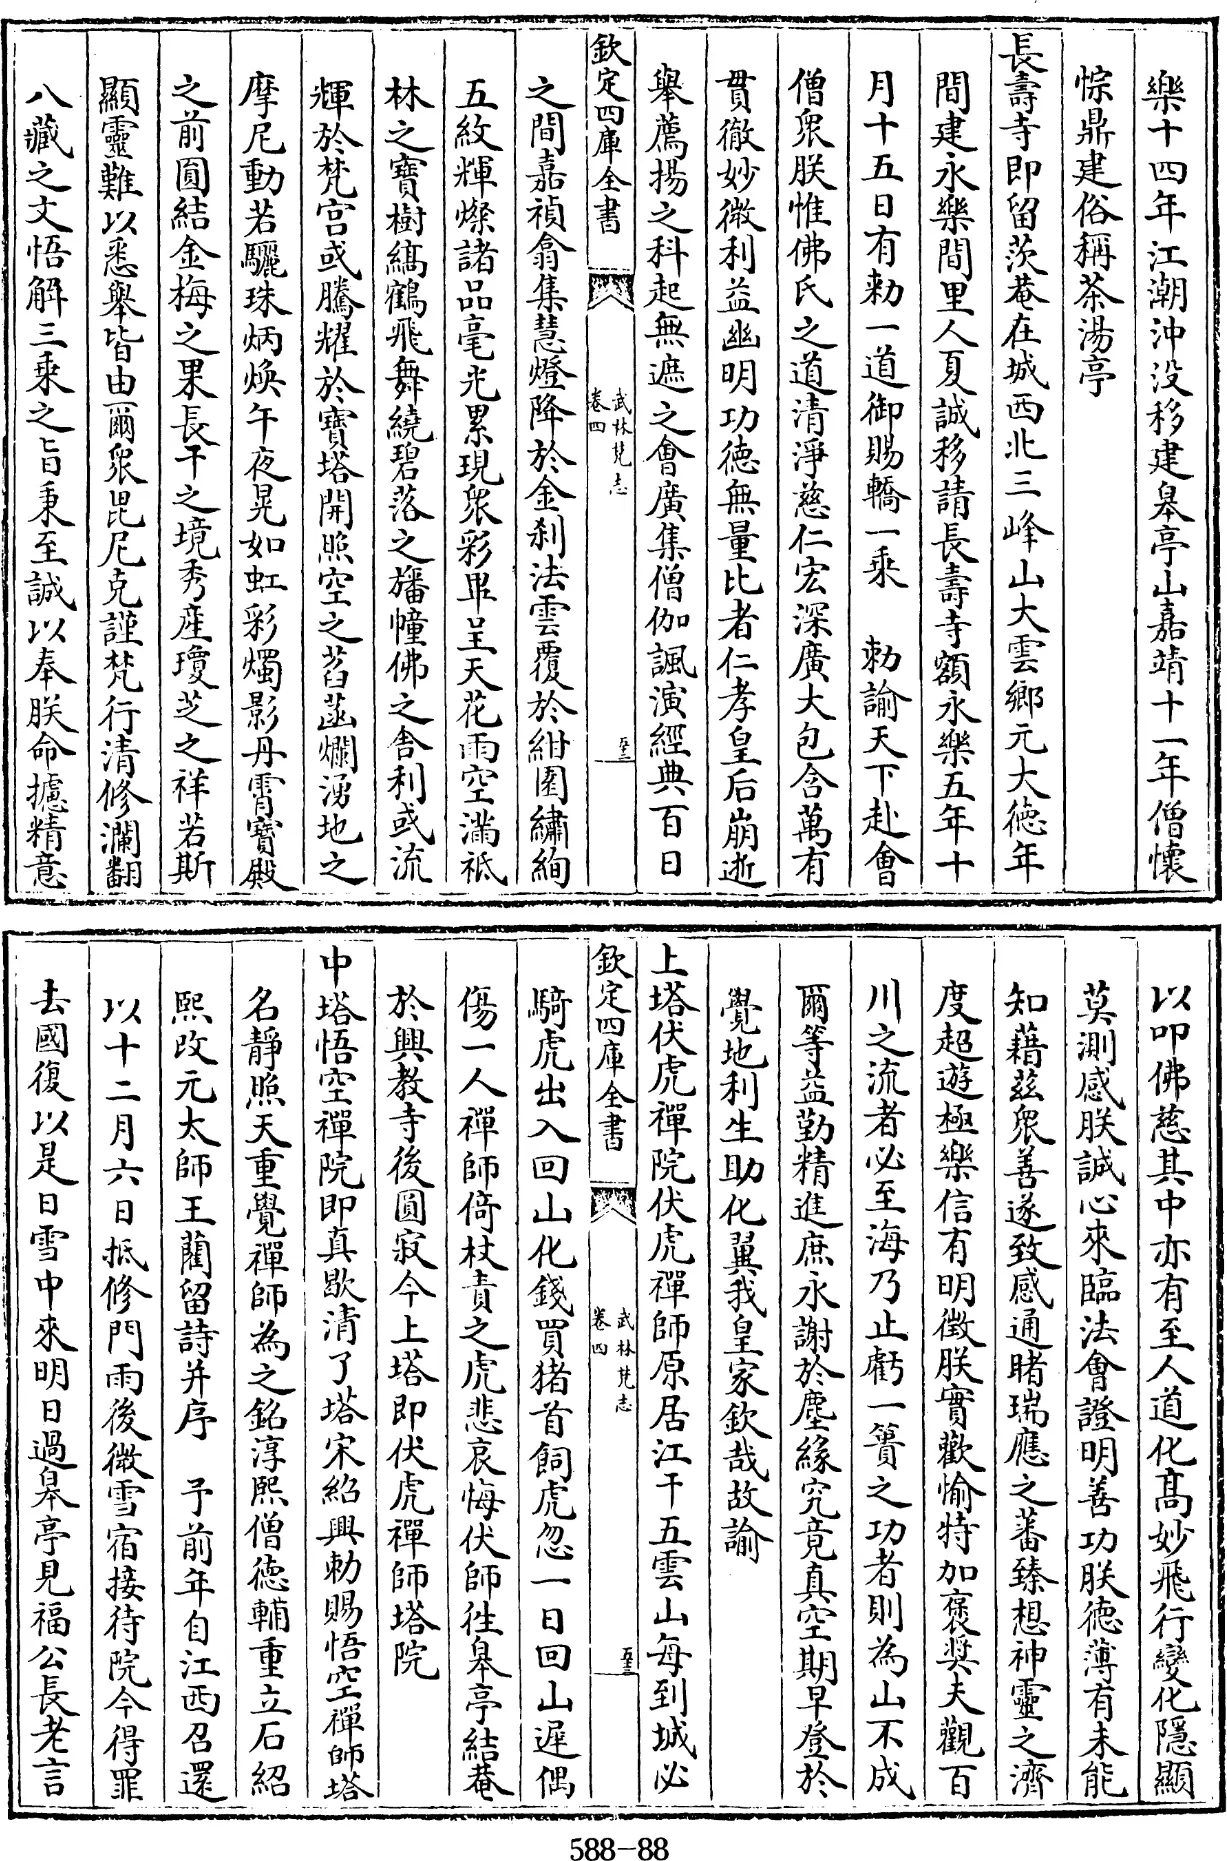 樂十四年江潮沖没移建皋亭山嘉靖十一年僧懷
悰鼎建俗稱茶湯亭
長壽寺即留茨菴在城西北三峰山大雲鄉元大德年
間建永樂間里人夏誠移請長壽寺額永樂五年十
月十五日有勅一道御賜轎一乘　勅諭天下赴會
僧衆朕惟佛氏之道清淨慈仁宏深廣大包含萬有
貫徹妙微利益幽明功德無量比者仁孝皇后崩逝
舉薦揚之科起無遮之會廣集僧伽諷演經典百日
欽定四庫全書
武林梵志
卷四
之間嘉禎翕集慧燈降於金刹法雲覆於紺園繡絢
五紋輝燦諸品毫光累現衆彩畢呈天花雨空滿祗
林之寶樹縞鶴飛舞繞碧落之旛幢佛之舍利或流
輝於梵宮或騰耀於寶塔開照空之菡爛湧地之
摩尼動若驪珠炳煥午夜晃如虹彩燭影丹霄寶殿
之前圓結金梅之果長干之境秀産瓊芝之祥若斯
顯靈難以悉舉皆由爾衆毘尼克謹梵行清修瀾翻
八藏之文悟解三乘之旨秉至誠以奉朕命攄精意
以叩佛慈其中亦有至人道化髙妙飛行變化隱顯
莫測感朕誠心來臨法會證明善功朕德薄有未能
知藉兹衆善遂致感通睹瑞應之蕃臻想神靈之濟
度超遊極樂信有明徵朕實歡愉特加褒奬夫觀百
川之流者必至海乃止虧一簣之功者則為山不成
爾等益勤精進庶永謝於塵緣究竟真空期早登於
覺地利生助化翼我皇家欽哉故諭
上塔伏虎禪院伏虎禪師原居江干五雲山每到城必
欽定四庫全書
武林梵志
卷四
騎虎出入回山化錢買猪首飼虎忽一日回山遲偶
傷一人禪師倚杖責之虎悲哀悔伏師徃皋亭結菴
於興教寺後圓寂今上塔即伏虎禪師塔院
中塔悟空禪院即真歇清了塔宋紹興勅賜悟空禪師塔
名靜照天重覺禪師為之銘淳熙僧德輔重立石紹
熙改元太師王藺留詩并序　予前年自江西召還
以十二月六日抵修門雨後微雪宿接待院今得罪
去國復以是日雪中來明日過皋亭見福公長老言
588-88